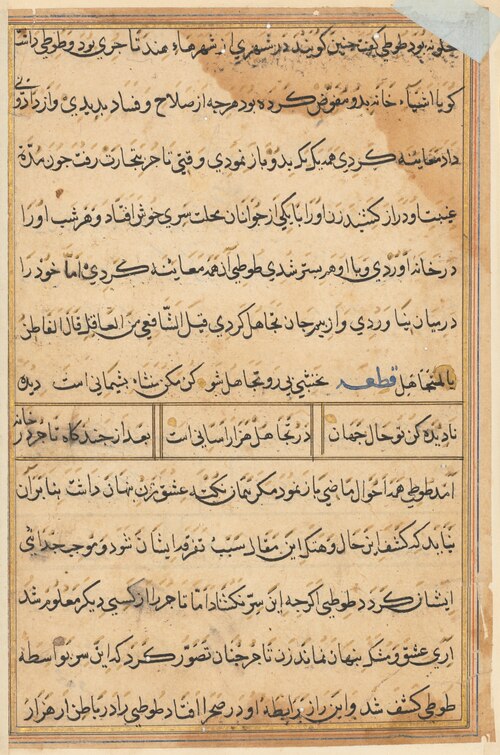 چگونه بود طوطی گفت چنین گویند در شهری از شهرهاء هند تاجری بود و طوطی داشت
گویا اشیاء خانه بدو مفوض کرده بود هرچه از صلاح و فساد بدیدی و از
داد معاینه کردی همه یک یک بدو باز نمودی وقتی تاجر بتجارت رفت چون مدة
غیبت او دراز کشید زن او را با یکی از جوانان محلت سری خوش افتاد و هر شب او را
در خانه آوردی و با او هم بستر شدی طوطی آن همه معاینه کردی اما خود را
در میان نیاوردی و از سر جان تجاهل کردی قیل الشافعی من العاقل قال الفاطن
بالمتجاهل قطعه نخشبی رو تجاهل شو کن مکن منشاء پشیمانی است دیده
نادیده کن تو حال جهان در تجاهل هزار آسانی است بعد از چندگاه تاجر در خانه
آمد طوطی همه احوال ماضی باز نمود مگر همان نکته عشق زن نهان داشت بنابر آن
نباید که کشف این حال و هتک این مقال سبب تفرقه ایشان شود و موجب جدائی
ایشان گردد طوطی اگرچه این سر نگشاد اما تاجر را از کسی دیگر معلوم شد
آری عشق و مشک پنهان نماند زن تاجر چنان تصور کرد که این سر بواسطه
طوطی کشف شد و این راز رابطه او در صحرا افتاد طوطی را در باطن از هزار